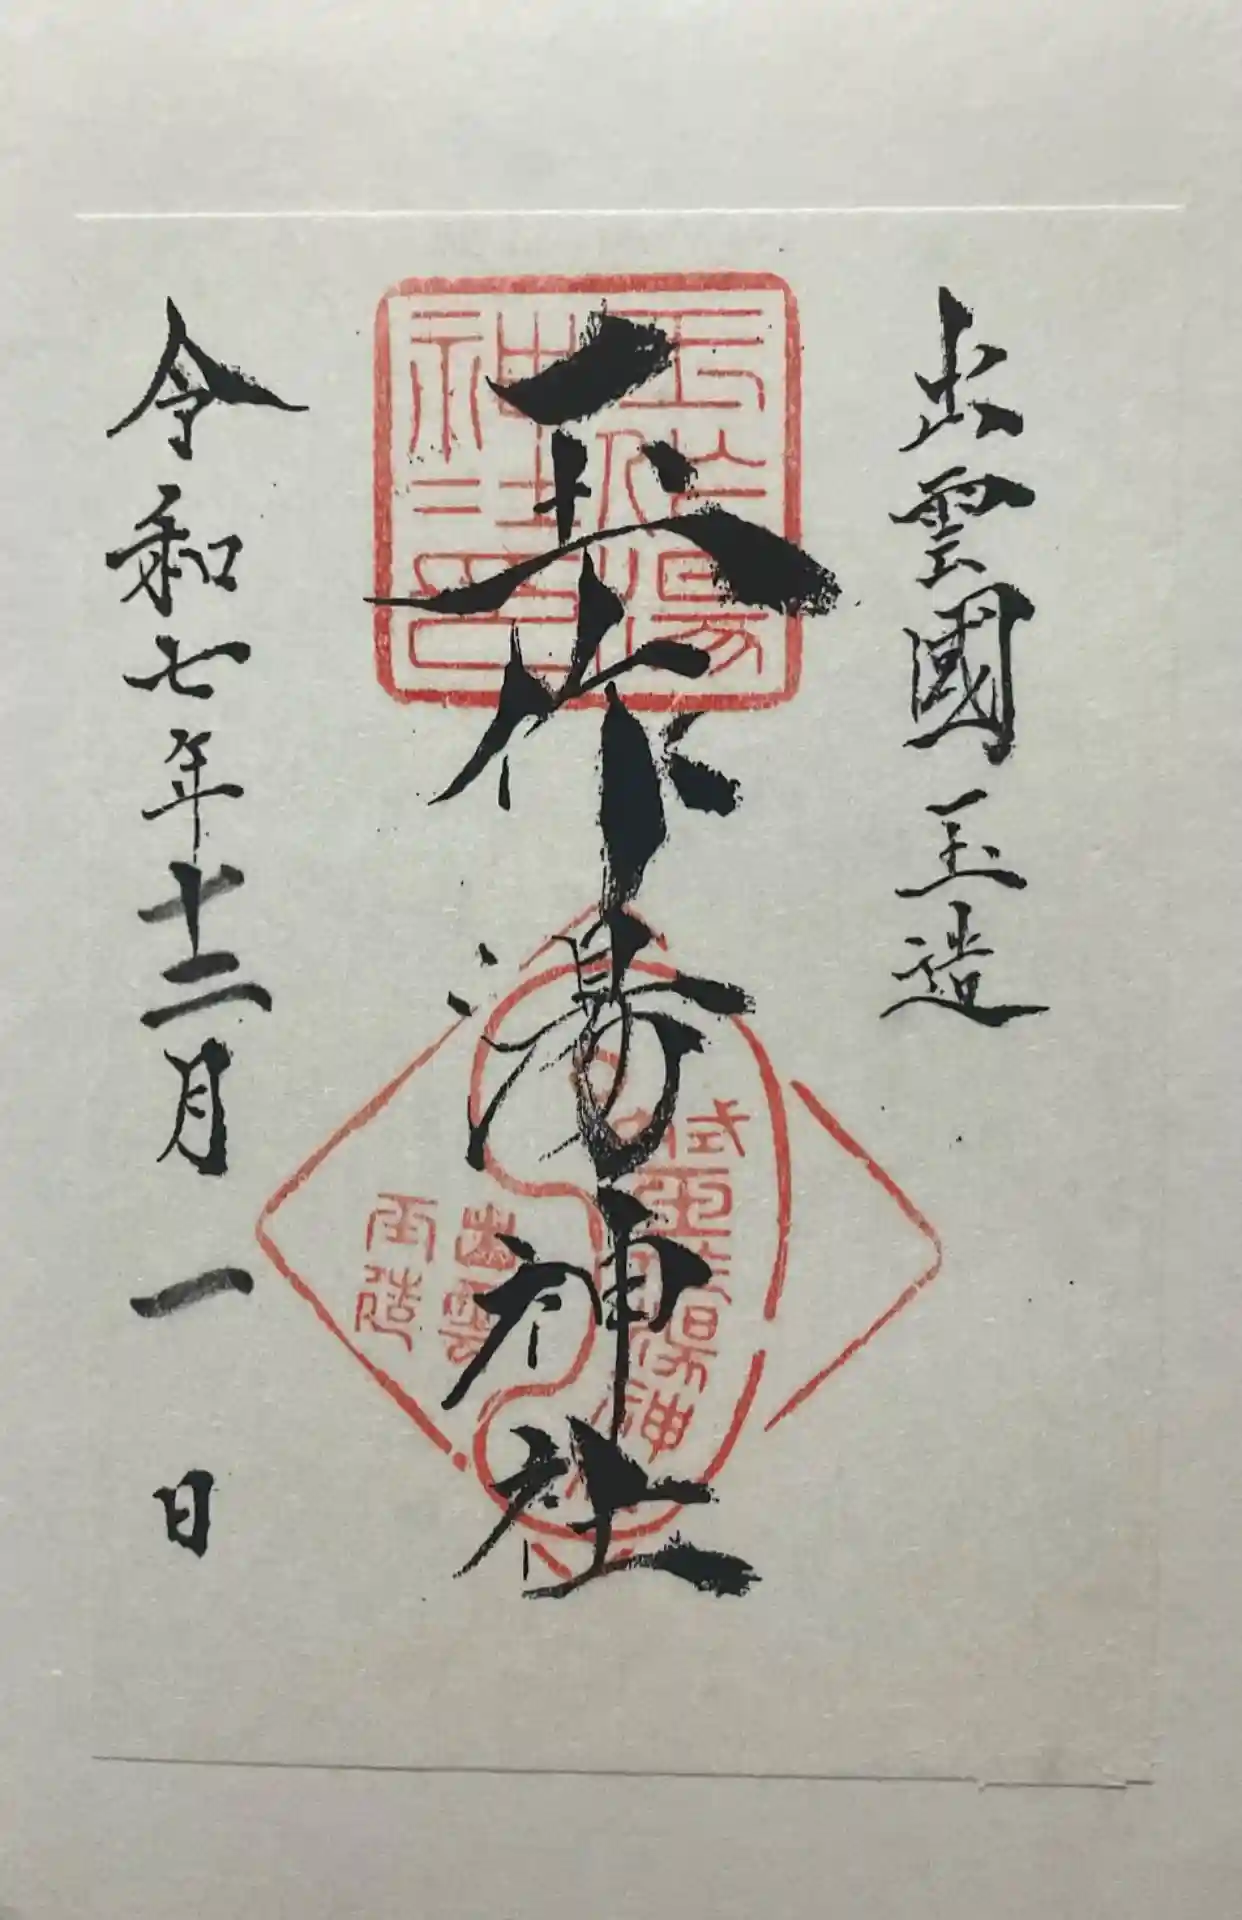 出雲國玉造
玉作湯神社
令和七年十二月一日
玉作湯
神社印
式内
玉作湯神社
出雲
玉造